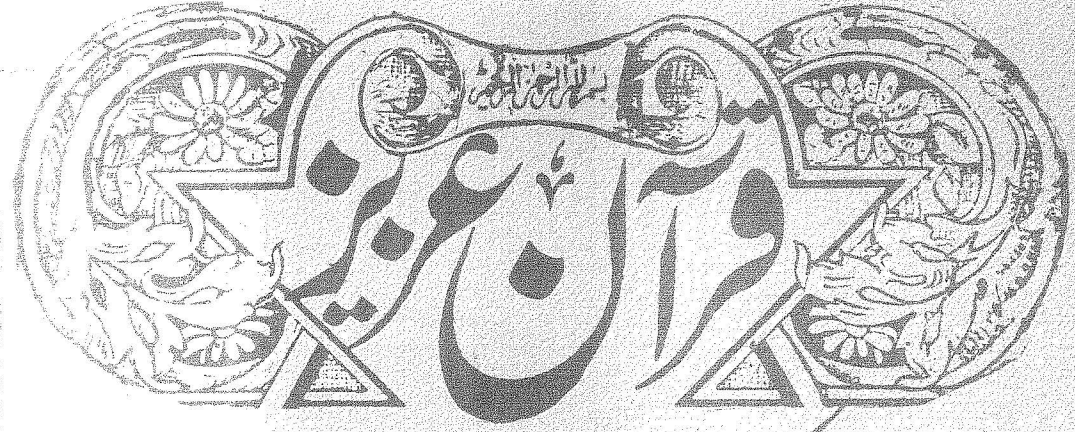 بسم الله الرحمن الرحیم
قرآن عزیز